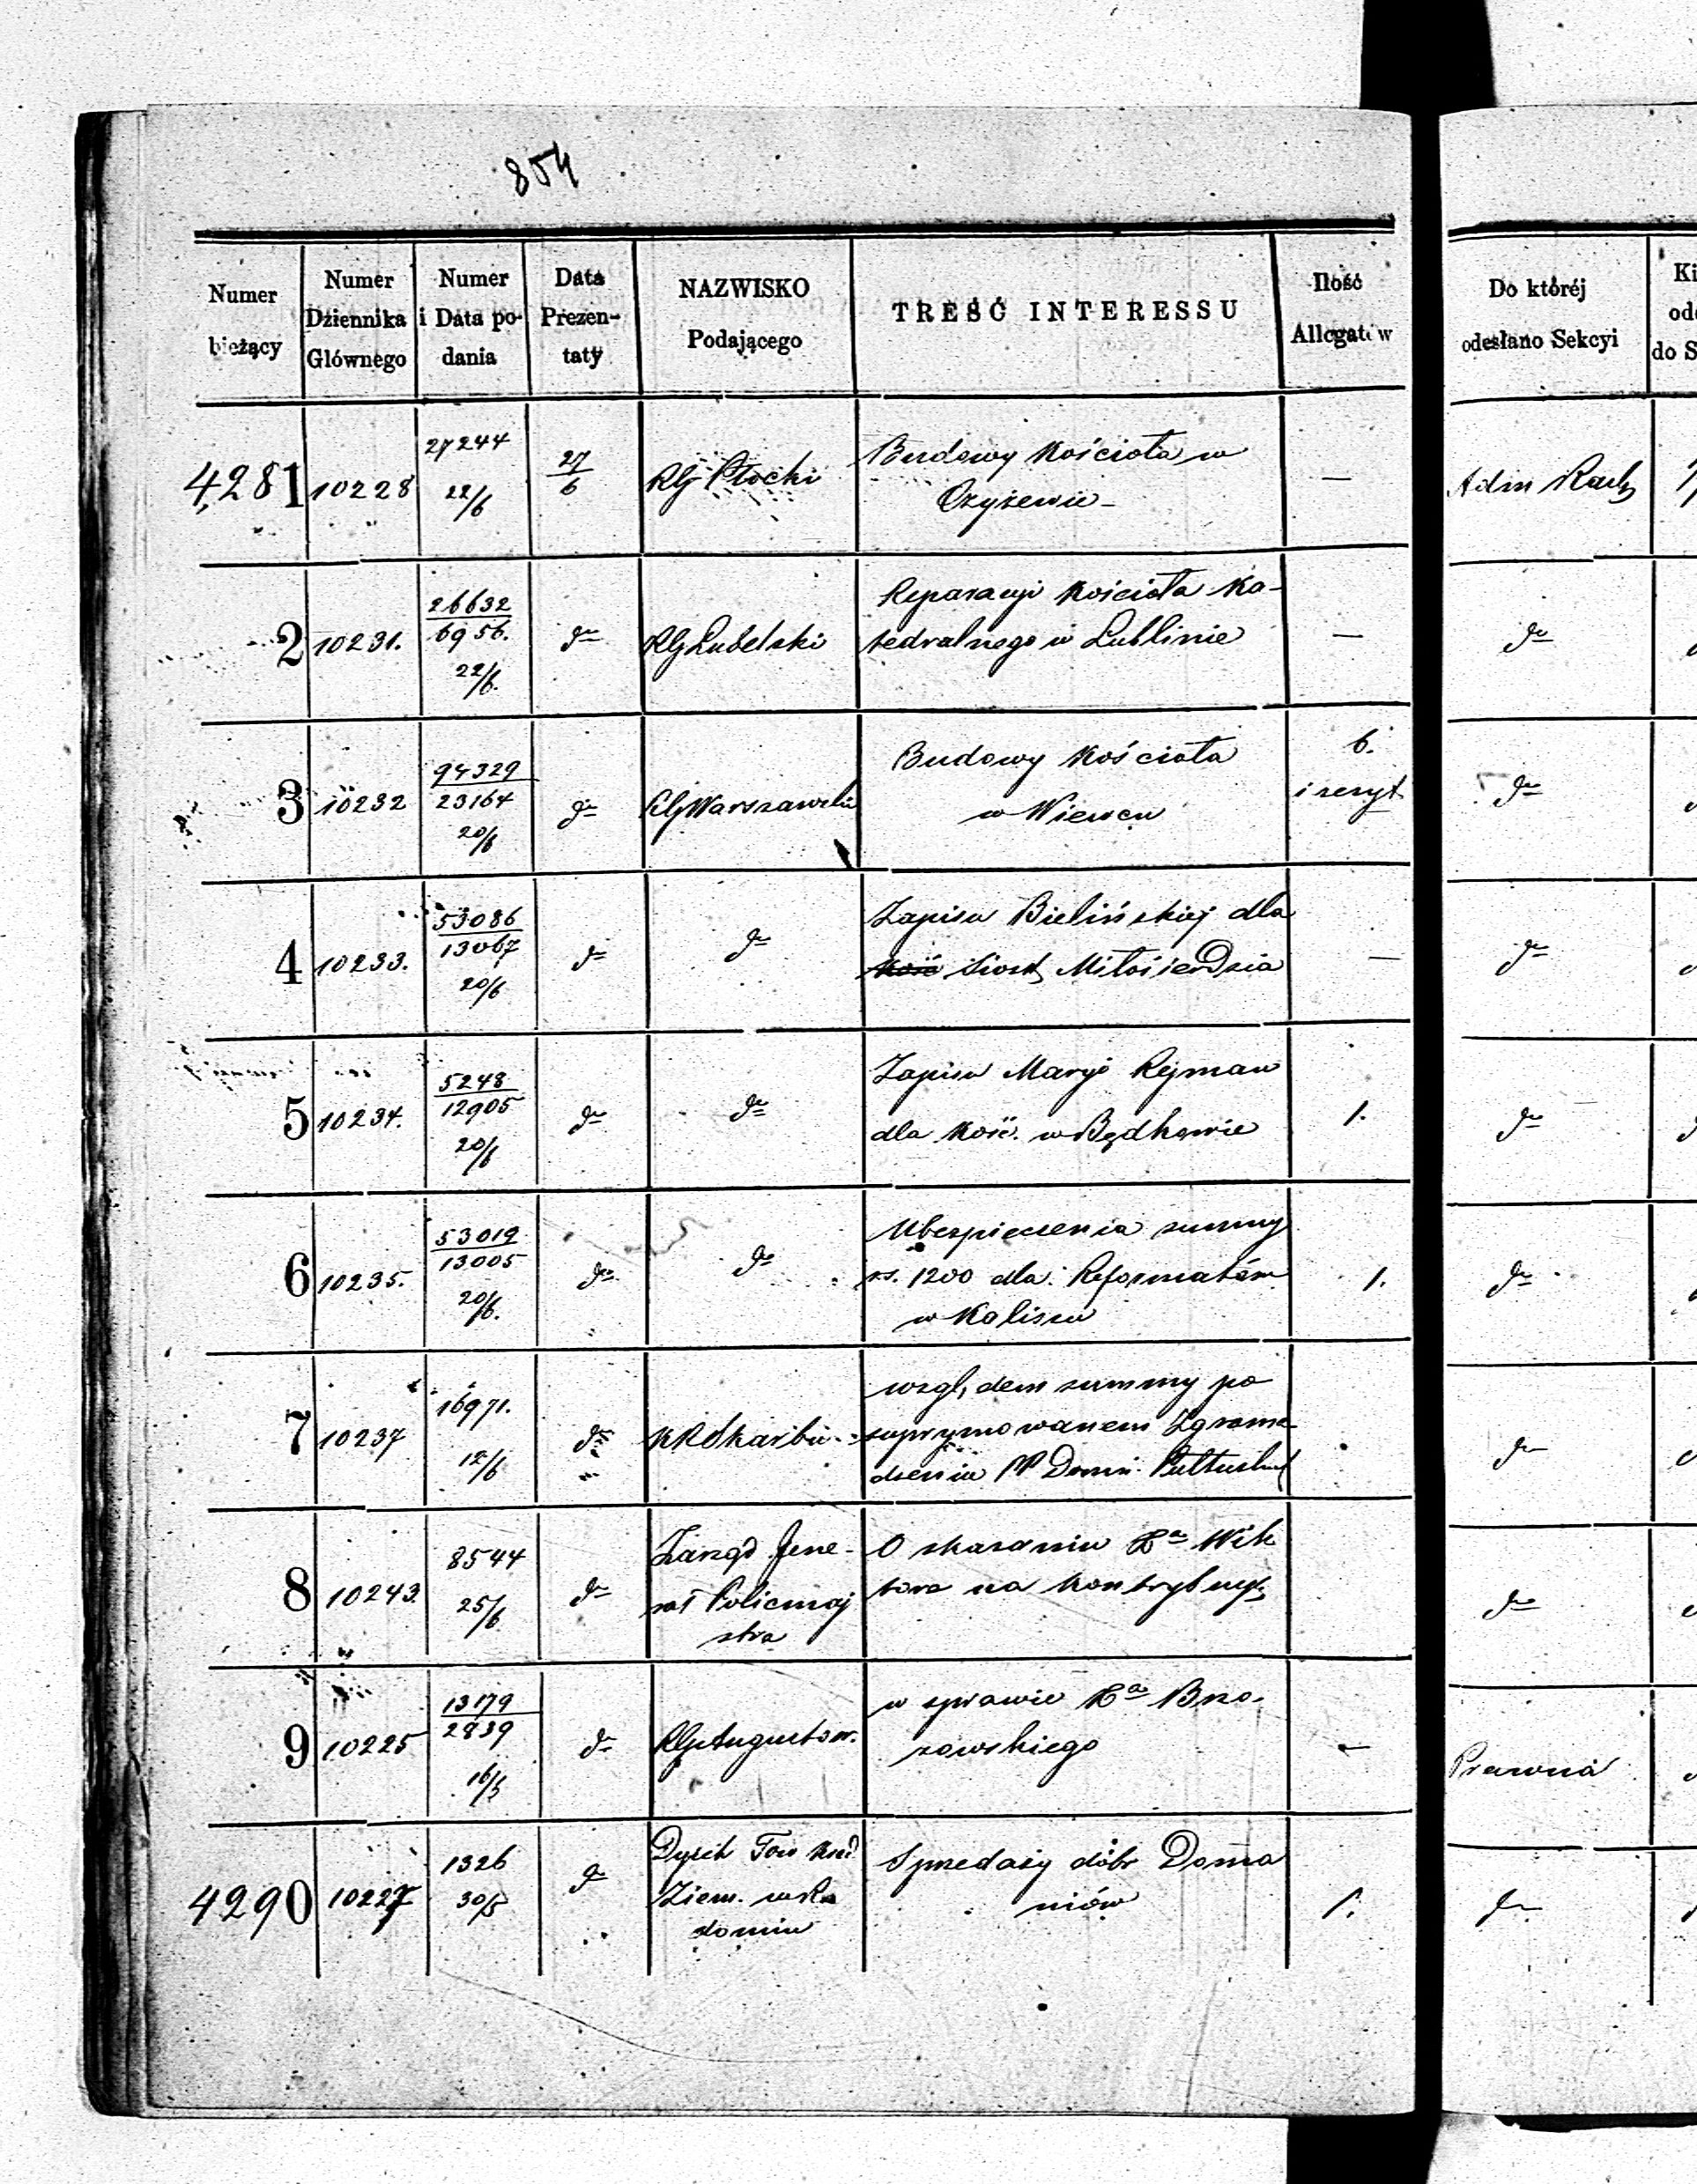 854
Numer bieżący
Numer Dziennika Głównego
Numer i Data podania
Data Prezentaty
NAZWISKO Podającego
TREŚĆ INTERESSU
Ilość Allegatów
Do któréj odesłano Sekcyi
4281 10228 27244 22/6 27/6 RG Płocki Budowy Kościoła w — Adm Rach
Czyżewie –
2 10231. 26632/6956. 22/6. do RG Lubelski Reparacyi Kościoła Ka- — do
tedralnego w Lublinie
3 10232 94329/23164 20/6 do RG Warszawski Budowy Kościoła 6. do
w Wiewcu i reszyt
4 10233. 53086/13067 20/6 do do Zapisu Bielińskiej dla — do
Kość Siost Miłosierdzia
5 10234. 5248/12905 20/6 do do Zapisu Maryi Rejman 1. do
dla Kość. w Będkowie
6 10235. 53019/13005 20/6. do do Ubezpieczenia summy 1. do
rs. 1200 dla Reformatów
w Kaliszu
7 10237 16971. 12/6 do KR Skarbu względem summy po do
suprymowanem Zgroma
dzeniu PP Domi. Pułtusku
8 10243. 8544 25/6 do Zarząd Jene- O skazaniu Xa Wik do
rał Policmaj tora na kontrybucyą
stra
9 10225 13179/2839 16/5 do RG Augustow. w sprawie Xa Brzo- — Prawna
zowskiego
4290 10227 1326 30/5 do Dyrek Tow Kred Sprzedaży dóbr Doma 1. do
Ziem. w Ra niów
domiu